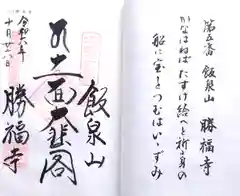 第五番 飯泉山 勝福寺
かなはねばたすけ給へと祈る身の
船に宝をつむはいゝずみ
飯泉山
十一面大悲閣
勝福寺
令和六年
十月廿六日